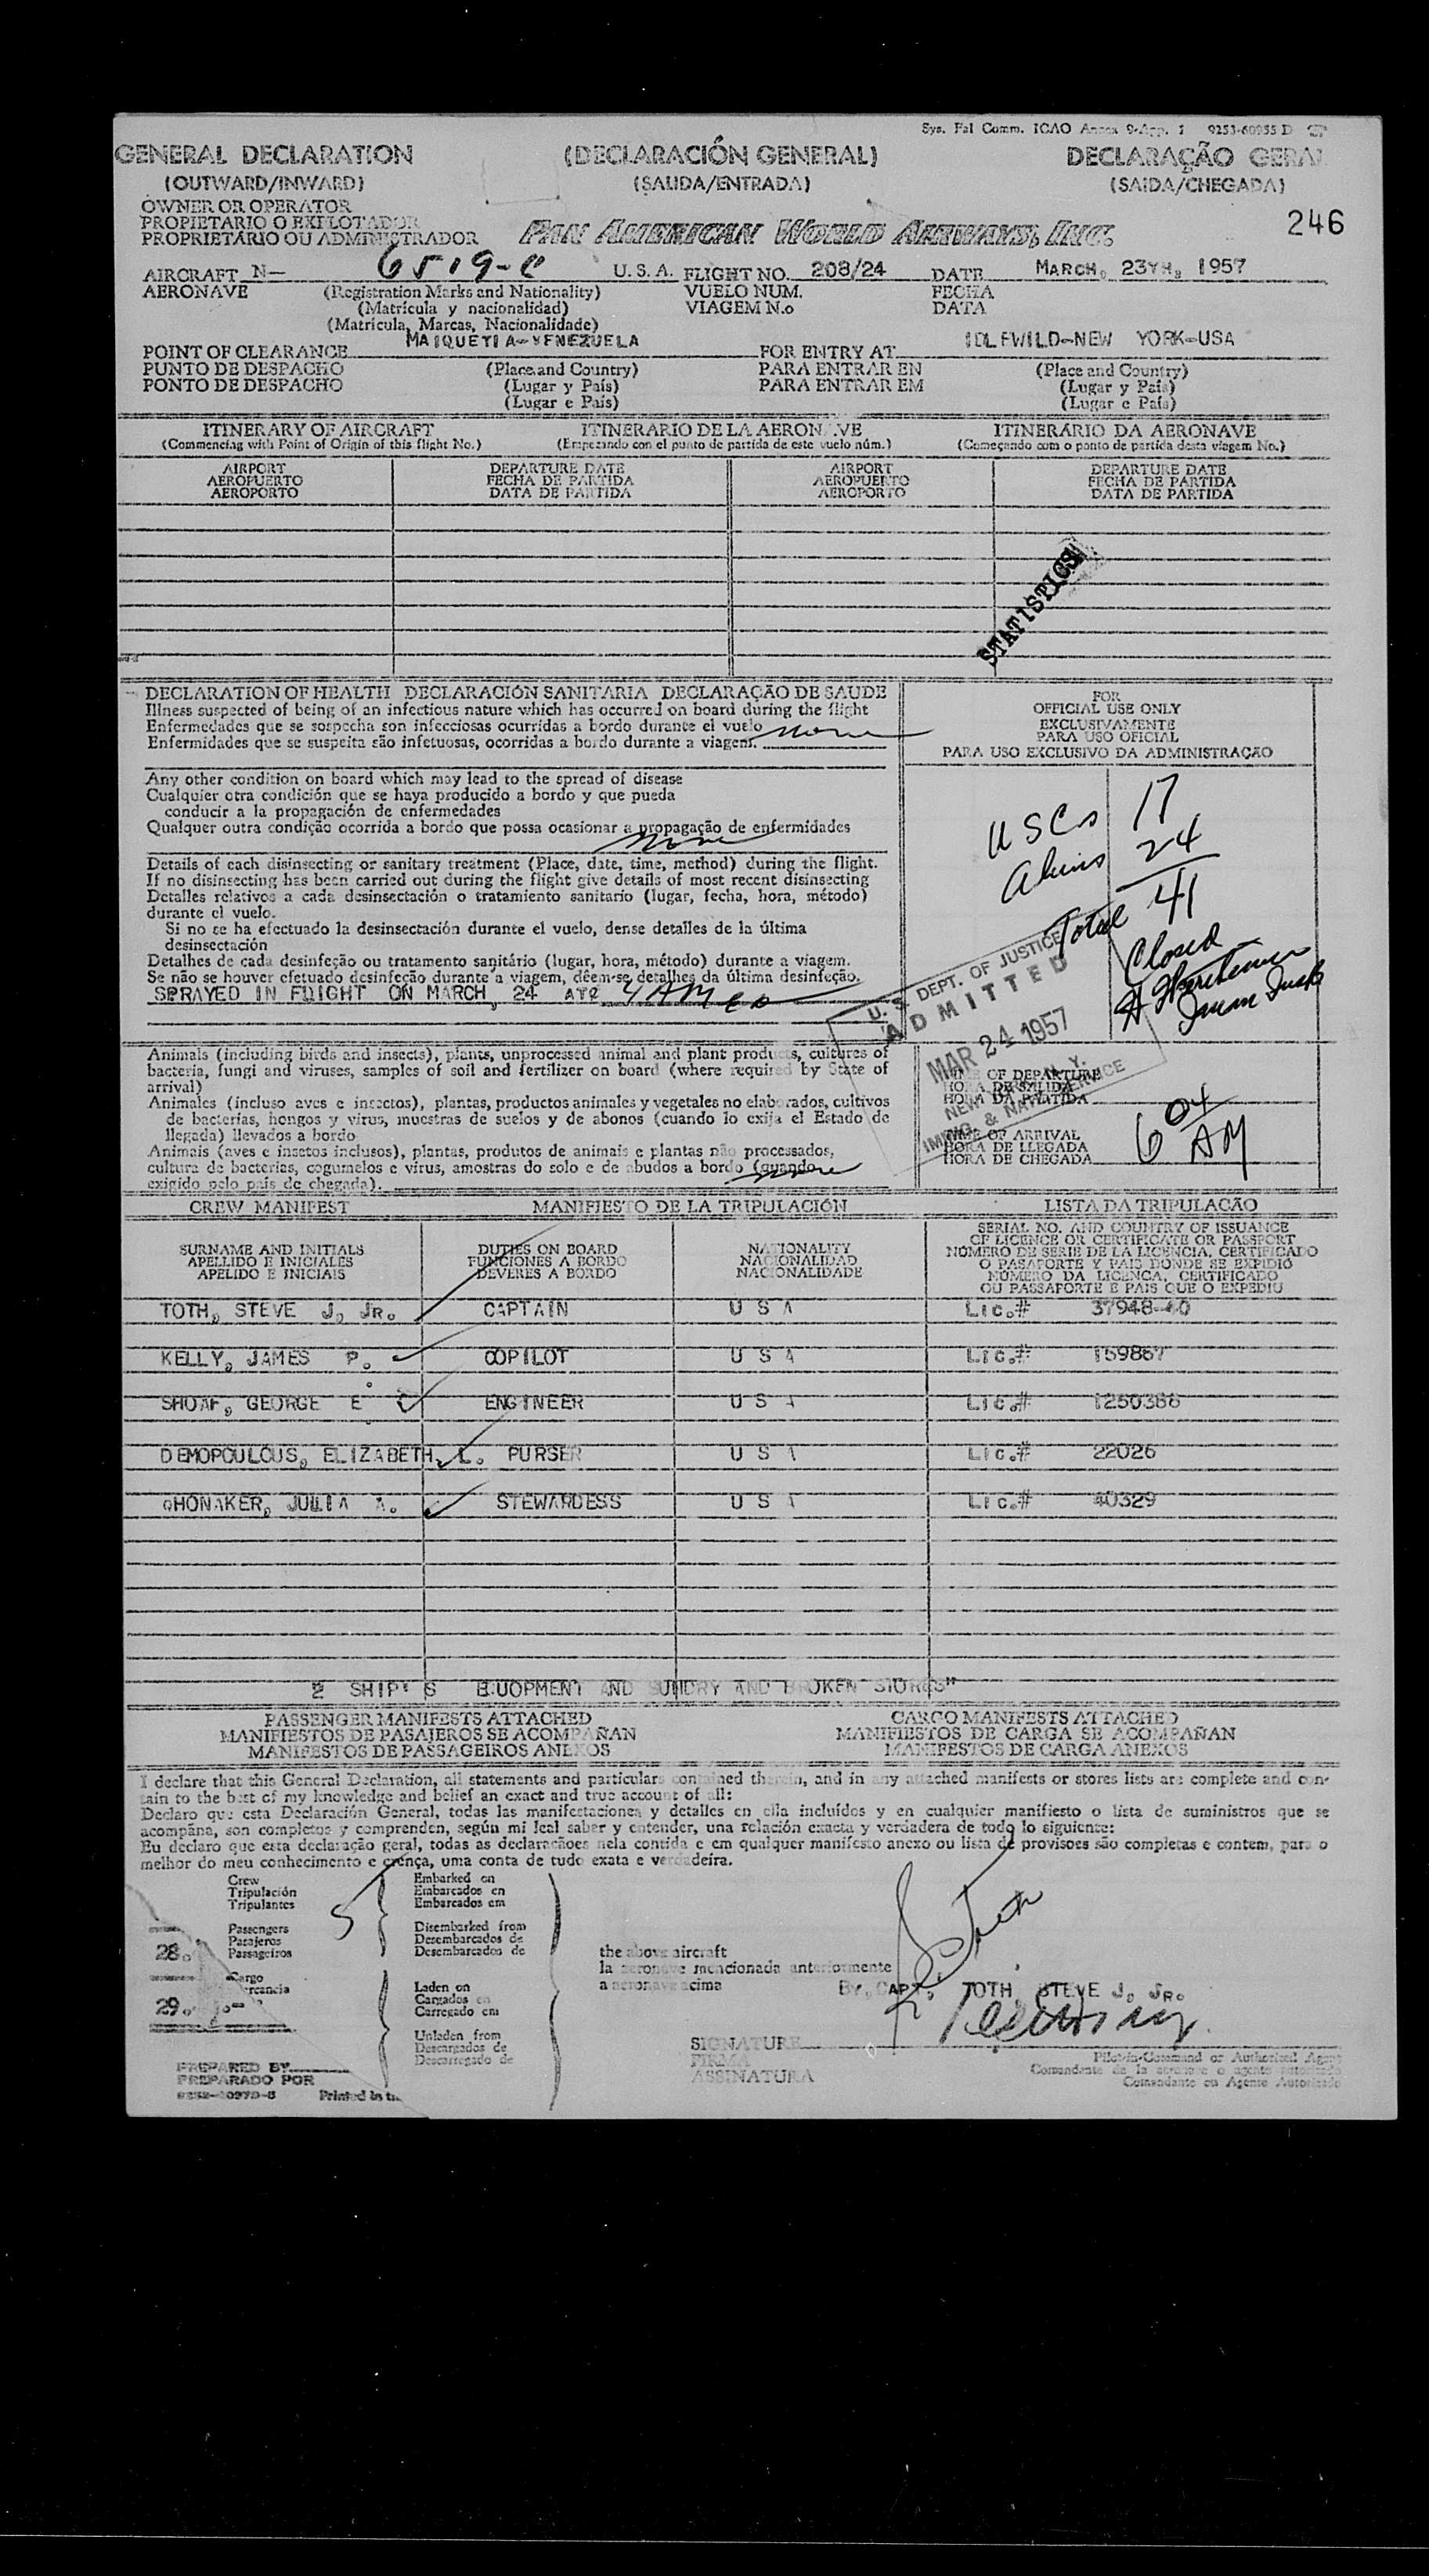 Sys. Fal Comm. ICAO Annex 9-App. 1 9253-60955 D
GENERAL DECLARATION (DECLARACIÓN GENERAL) DECLARAÇÃO GERAL
(OUTWARD/INWARD) (SALIDA/ENTRADA) (SAIDA/CHEGADA)
OWNER OR OPERATOR
PROPIETARIO O EXPLOTADOR
PROPRIETÁRIO OU ADMINISTRADOR PAN AMERICAN WORLD AIRWAYS, INC. 246
AIRCRAFT N- 6519-C U.S.A. FLIGHT NO. 208/24 DATE MARCH, 23YH, 1957
AERONAVE (Registration Marks and Nationality) VUELO NUM. FECHA
(Matrícula y nacionalidad) VIAGEM N.o DATA
(Matricula, Marcas, Nacionalidade)
POINT OF CLEARANCE MAIQUETIA-VENEZUELA FOR ENTRY AT IDLEWILD-NEW YORK-USA
PUNTO DE DESPACHO (Place and Country) PARA ENTRAR EN (Place and Country)
PONTO DE DESPACHO (Lugar y País) PARA ENTRAR EM (Lugar y País)
(Lugar e País) (Lugar e País)
ITINERARY OF AIRCRAFT ITINERARIO DE LA AERONAVE ITINERÁRIO DA AERONAVE
(Commencing with Point of Origin of this flight No.) (Empezando con el punto de partida de este vuelo núm.) (Começando com o ponto de partida desta viagem No.)
AIRPORT DEPARTURE DATE AIRPORT DEPARTURE DATE
AEROPUERTO FECHA DE PARTIDA AEROPUERTO FECHA DE PARTIDA
AEROPORTO DATA DE PARTIDA AEROPORTO DATA DE PARTIDA
STATISTICS
DECLARATION OF HEALTH DECLARACIÓN SANITARIA DECLARAÇÃO DE SAUDE
Illness suspected of being of an infectious nature which has occurred on board during the flight
Enfermedades que se sospecha son infecciosas ocurridas a bordo durante el vuelo
Enfermidades que se suspeita são infetuosas, ocorridas a bordo durante a viagem. none
Any other condition on board which may lead to the spread of disease
Cualquier otra condición que se haya producido a bordo y que pueda
conducir a la propagación de enfermedades
Qualquer outra condição ocorrida a bordo que possa ocasionar a propagação de enfermidades
none
Details of each disinsecting or sanitary treatment (Place, date, time, method) during the flight.
If no disinsecting has been carried out during the flight give details of most recent disinsecting
Detalles relativos a cada desinsectación o tratamiento sanitario (lugar, fecha, hora, método)
durante el vuelo.
Si no se ha efectuado la desinsectación durante el vuelo, dense detalles de la última
desinsectación
Detalhes de cada desinfeção ou tratamento sanitário (lugar, hora, método) durante a viagem.
Se não se houver efetuado desinfeção durante a viagem, dêem-se detalhes da última desinfeção.
SPRAYED IN FLIGHT ON MARCH, 24
FOR
OFFICIAL USE ONLY
EXCLUSIVAMENTE
PARA USO OFICIAL
PARA USO EXCLUSIVO DA ADMINISTRAÇÃO
USCs 17
Aliens 24
Total 41
Closed
U. S. DEPT. OF JUSTICE
ADMITTED
MAR 24 1957
NEW YORK, N.Y.
IMMIG. & NATZ. SERVICE
Animals (including birds and insects), plants, unprocessed animal and plant products, cultures of
bacteria, fungi and viruses, samples of soil and fertilizer on board (where required by State of
arrival)
Animales (incluso aves e insectos), plantas, productos animales y vegetales no elaborados, cultivos
de bacterias, hongos y virus, muestras de suelos y de abonos (cuando lo exija el Estado de
llegada) llevados a bordo
Animais (aves e insetos inclusos), plantas, produtos de animais e plantas não processados,
cultura de bacterias, cogumelos e virus, amostras do solo e de abudos a bordo (quando
exigido pelo país de chegada). none
TIME OF DEPARTURE
HORA DE SALIDA
HORA DA PARTIDA
TIME OF ARRIVAL
HORA DE LLEGADA
HORA DE CHEGADA 6 04 AM
CREW MANIFEST MANIFIESTO DE LA TRIPULACIÓN LISTA DA TRIPULAÇÃO
SURNAME AND INITIALS DUTIES ON BOARD NATIONALITY SERIAL NO. AND COUNTRY OF ISSUANCE
APELLIDO E INICIALES FUNCIONES A BORDO NACIONALIDAD OF LICENCE OR CERTIFICATE OR PASSPORT
APELIDO E INICIAIS DEVERES A BORDO NACIONALIDADE NÚMERO DE SERIE DE LA LICENCIA, CERTIFICADO
O PASAPORTE Y PAIS DONDE SE EXPIDIÓ
NÚMERO DA LICENCA, CERTIFICADO
OU PASSAPORTE E PAIS QUE O EXPEDIU
TOTH, STEVE J, JR. CAPTAIN U S A LIC.# 37948-40
KELLY, JAMES P. COPILOT U S A LIC.# 159867
SHOAF, GEORGE E ENGINEER U S A LIC.# 1250366
DEMOPOULOUS, ELIZABETH, L. PURSER U S A LIC.# 22026
HONAKER, JULIA A. STEWARDESS U S A LIC.# 40329
2 SHIP'S EUOPMENT AND SUNDRY AND BROKEN STORES"
PASSENGER MANIFESTS ATTACHED CARGO MANIFESTS ATTACHED
MANIFIESTOS DE PASAJEROS SE ACOMPAÑAN MANIFIESTOS DE CARGA SE ACOMPAÑAN
MANIFESTOS DE PASSAGEIROS ANEXOS MANIFESTOS DE CARGA ANEXOS
I declare that this General Declaration, all statements and particulars contained therein, and in any attached manifests or stores lists are complete and con-
tain to the best of my knowledge and belief an exact and true account of all:
Declaro que esta Declaración General, todas las manifestaciones y detalles en ella incluídos y en cualquier manifiesto o lista de suministros que se
acompãna, son completos y comprenden, según mi leal saber y entender, una relación exacta y verdadera de todo lo siguiente:
Eu declaro que esta declaração geral, todas as declarações nela contida e em qualquer manifesto anexo ou lista de provisoes são completas e contem, para o
melhor do meu conhecimento e crença, uma conta de tudo exata e verdadeira.
Crew Embarked on
Tripulación 5 Embarcados en
Tripulantes Embarcados em
Passengers Disembarked from
Pasajeros Desembarcados de
28. Passageiros Desembarcados de
the above aircraft
la aeronave mencionada anteriormente
a aeronave acima
Cargo Laden on
Cargados en
29. Carregado em
BY, CAPT, TOTH, STEVE J, JR.
Unladen from
Descargados de
Descarregado de
SIGNATURE
FIRMA
ASSINATURA
Pilot-in-Command or Authorized Agent
Comandante de la aeronave o agente autorizado
Comandante ou Agente Autorizado
PREPARED BY
PREPARADO POR
Printed in